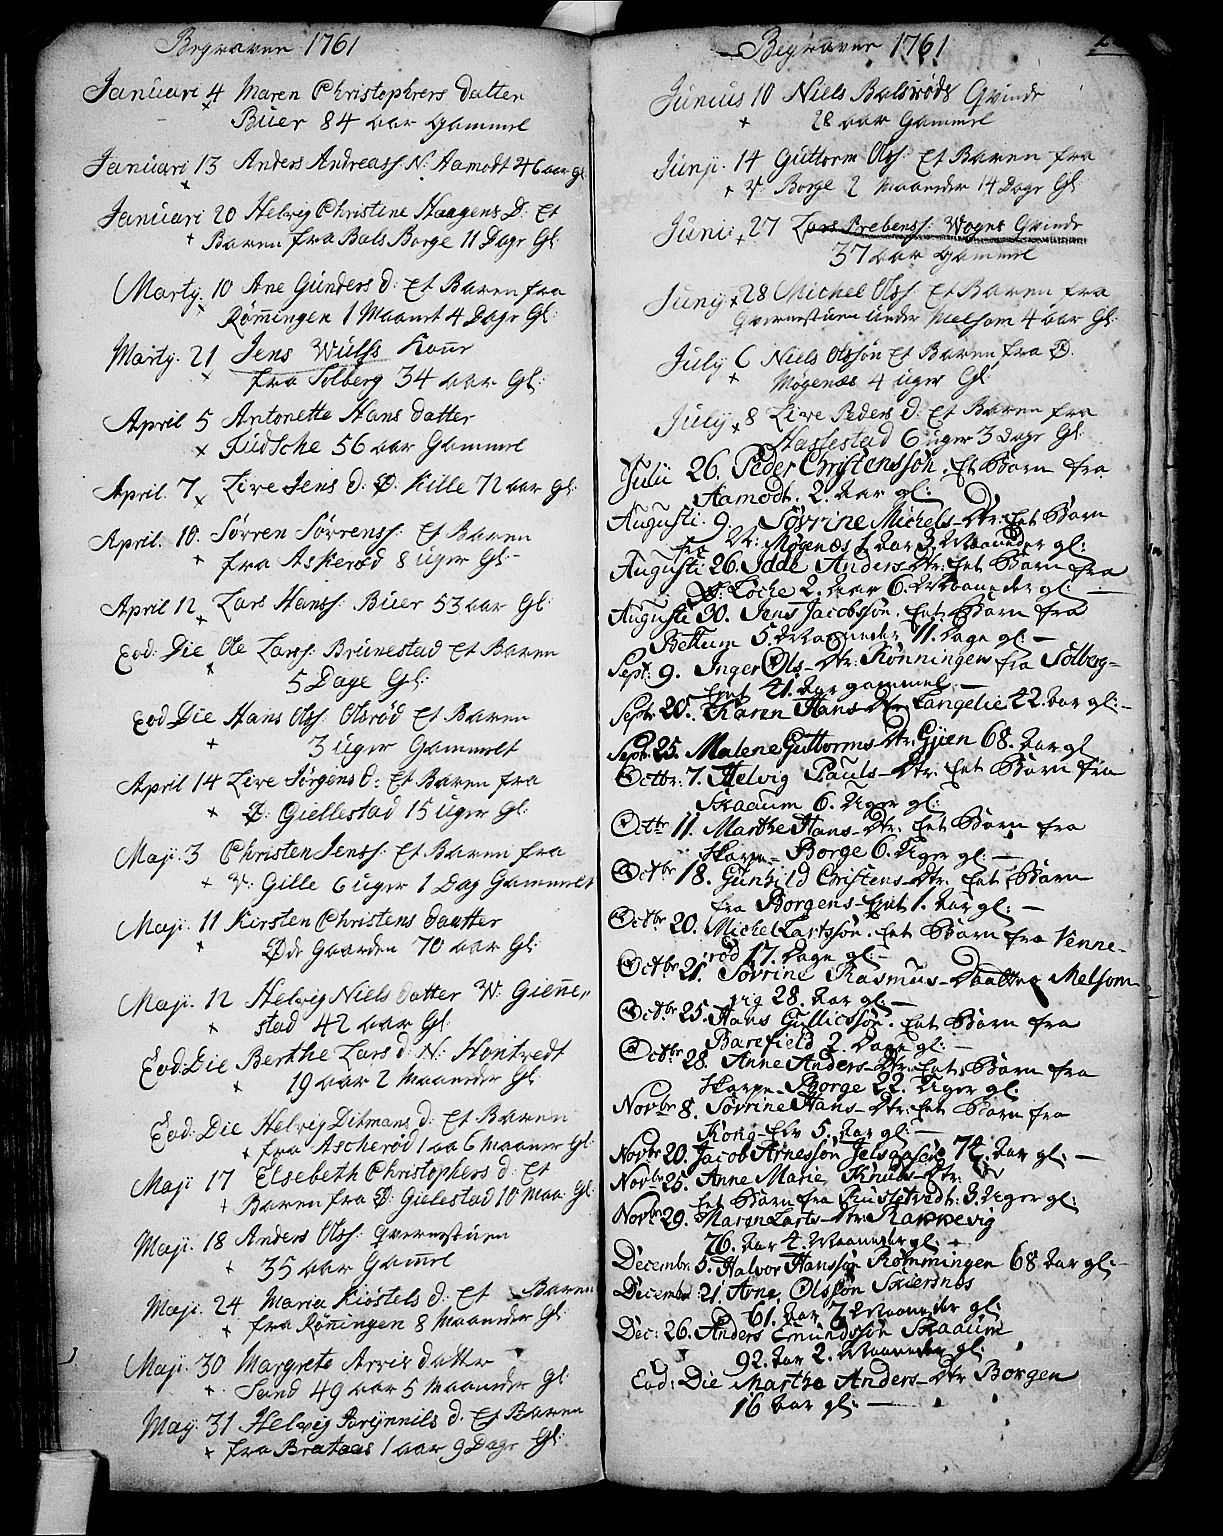 Begravne 1761
Januari 4 Maren Christophers datter
Büer 84 aar Gammel
Januari 13 Anders Andreass: N: Aamodt 46 aar gl
Januari 20 Helvig Christine Haagens D: Et
Baren fra Bals Borge 11 Dage Gl:
Marty. 10 Ane Günders d: Et Baren fra
Røningen 1 Maanet 4 Dage Gl:
Marty. 21 Jens Wülfs Kone
fra Solberg 34 aar Gl:
April 5 Antonette Hans datter
Füdsche 56 aar Gammel
April 7 Live Jens d: Ø: Kille 72 aar gl:
April. 10. Sørren Sørrens: Et Baren
fra Askerød 8 uger Gl:
April 12 Lars Hanss: Büer 53 aar Gl:
Eod: Die Ole Larss: Brünestad Et Baren
5 Dage Gl:
Eod Die Hans Olss: Olsrød Et Baren
3 uger Gammelt
April 14 Live Jørgens d: Et Baren fra
Ø: Giellestad 15 uger Gl:
Maji 3 Christen Jenss: Et Baren fra
V: Gille 6 uger 1 Dag Gammelt
Maji 11 Kirsten Christens daatter
Øde Gaarden 70 aar Gl:
Maji 12 Helvig Niels datter W: Gienne
stad 42 aar Gl:
Eod: Die Berthe Lars d: N: Hontvedt
19 aar 2 Maaneder Gl:
Eod: Die Helvig Ditmans d: Et Baren
fra Ascherød 1 aa 6 maaner Gl:
Maji 17 Elsebeth Christophers d: Et
Baren fra Ø: Gielestad 10 Maa: Gl:
Maji. 18 Anders Olss: Qvernestuen
35 aar Gamel
Maji. 24 Maria Kiostels d: Et Baren
fra Røningen 8 Maaneder Gl:
Maji 30 Margrete Arvis datter
Sand 49 aar 5 Maaneder gl:
May. 31 Helvig Brynnils d: Et Baren
fra Brataas 1 aar 9 Dage Gl:
Begravne 1761
Junius 10 Niels Balsrøds Qvinde
28 aar Gammel
Junji 14 Guttorm Olss: Et Baren fra
V: Borge 2 Maaneder 14 Dage Gl:
Juni 27 Lars Prebenss: Wogns Qvinde
37 aar Gammel
Junij 28 Michel Olss: Et Baren fra
Qvernestuen under Melsom 4 aar Gl:
July 6 Niels Olssøn Et Baren fra Ø.
Møgenæs 4 uger Gl:
July 8 Live Peders d: Et Baren fra
Haslestad 6 uger 3 dage Gl:
Julii 26. Peder Christenssøn. Et Barn fra
Aamodt. 2. Aar gl:
Augusti. 9. Sövrine Michels-Dtr: Eet Barn
fra V: Møgenæs 1 Aar 3. Maaneder gl:
Augusti 26. Idde Anders-Dtr: Eet Barn fra
W: Løcke 2. Aar 6. Maaneder gl:
Augusti 30. Jens Jacobssøn. Eet Barn fra
Bettum 5. Maaneder 11. Dage gl:
Sept: 9. Inger Ols-Dtr: Rønningen fra Solberg-
Eyet 41. Aar gammel.
Septr: 20. Karen Hans-Dtr: Langelie 42. Aar gl:
Septr: 25. Malene Guttorms-Dtr: Gjien 68. Aar gl
Octbr: 7. Helvig Pauls-Dtr: Eet Barn fra
Skaaum 6. Uger gl:
Octbr 11. Marthe Hans-Dtr: Eet Barn fra
Skarpe-Borge 6. Uger gl:
Octbr 18. Gunhild Christens-Dtr: Eet Barn
fra Borgens-Eyet 1. Aar gl:
Octbr 20. Michel Lartssøn. Eet Barn fra Venne-
rød 17. Dage gl:
Octbr 21. Sövrine Rasmus-Daatter Melsom-
vig 28. Aar gl:
Octbr 25. Hans Gullicssøn. Eet Barn fra
Barefield 2. Dage gl:
Octbr 28. Anne Anders-Dtr: Eet Barn fra
Skarpe-Borge 22. Uger gl:
Novbr 8. Sövrine Hans-Dtr: Eet Barn fra
Kong-Elv 5. Aar gl:
Novbr 20. Jacob Arnessøn 74. Aar gl:
Novbr 25. Anne Marie Knuds-Dtr:
Eet Barn fra 3. Uger gl:
Novbr 29. Maren Larts-Dtr: Rappevig
76. Aar 4. Maaneder gl:
Decembr. 5. Halvor Hanssøn Rømmingen 68 Aar gl:
Decembr: 21. Arne Olssøn Skiersnes
61. Aar 7. Maaneder gl:
Dec: 26. Anders Emundssøn Skaaum
92. Aar 2. Maaneder gl:
Eod: Die Marthe Anders-Dtr Borgen
16 Aar gl: